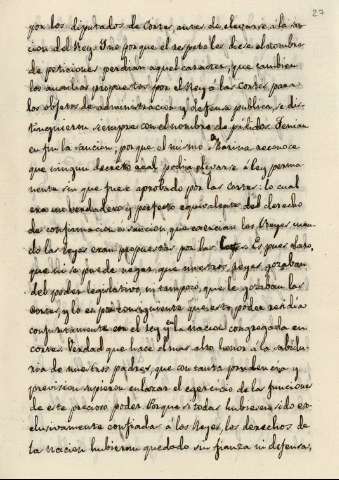 27
por los diputados de Cortes, antes de elevarse á la san-
cion del Rey. Ni porque el respeto les diese el nombre
de peticiones perdian aquel caracter, que tambien
los auxilios propuestos por el Rey á las Cortes para
los objetos de administracion y defensa publica, se dis-
tinguieron siempre con el nombre de pedidos. Tenian
en fin la sancion, porque el mismo Marina reconoce
que ningun decreto real podia elevarse á ley perma-
nente sin que fuese aprobado por las Cortes: lo cual
era un verdadero y perfecto equivalente del derecho
de confirmacion ó sancion, que exercian los Reyes cuan-
do las leyes eran propuestas por las Cortes. Es pues claro,
que no se puede negar, que nuestros reyes gozaban
del poder legislativo, ni tampoco, que le gozaban las
Cortes, y lo es por consiguiente que este poder residia
conjuntamente en el Rey y la nacion congregada en
cortes. Verdad que hace el mas alto honor á la sabidu-
ria de nuestros padres, que con tanta prudencia y
prevision supieron enlazar el egercicio de las funciones
de este precioso poder. Porque si todas hubiesen sido ex-
clusivamente confiadas á los Reyes, los derechos de
la nacion hubieran quedado sin fianza ni defensa;